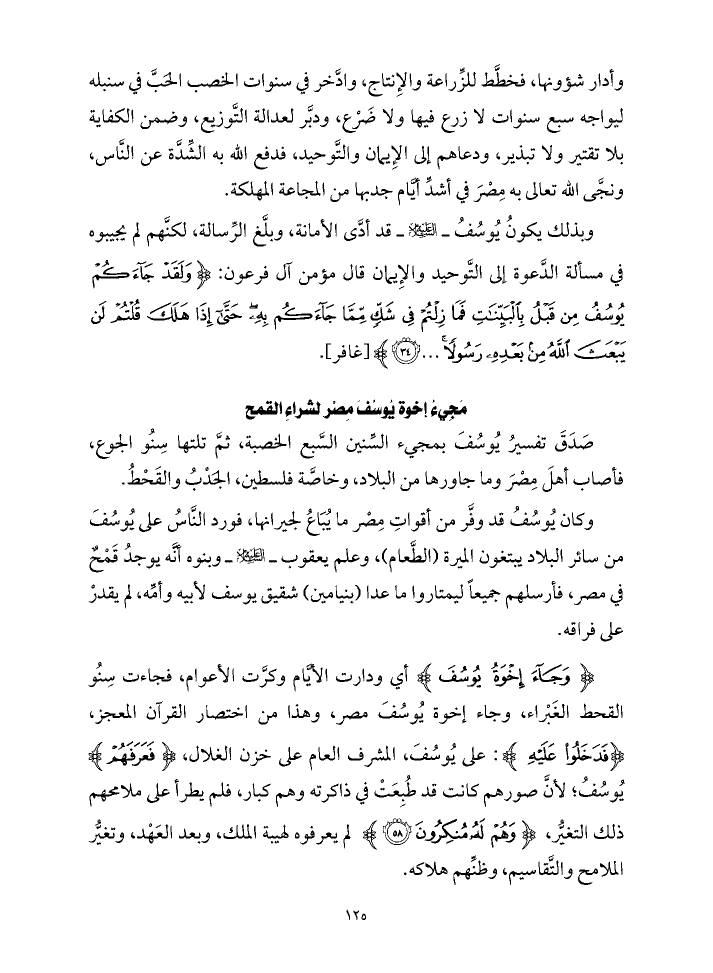 وأدار شؤونها، فخطَّط للزِّراعة والإنتاج، وادَّخر في سنوات الخصب الحَبَّ في سنبله
ليواجه سبع سنوات لا زرع فيها ولا ضَرْع، ودبَّر لعدالة التَّوزيع، وضمن الكفاية
بلا تقتير ولا تبذير، ودعاهم إلى الإيمان والتَّوحيد، فدفع الله به الشِّدَّة عن النَّاس،
ونجَّى الله تعالى به مِصْرَ في أشدِّ أيَّام جدبها من المجاعة المهلكة.
وبذلك يكونُ يُوسُفُ ـ عليه السلام ـ قد أدَّى الأمانة، وبلَّغ الرِّسالة، لكنَّهم لم يجيبوه
في مسألة الدَّعوة إلى التَّوحيد والإيمان قال مؤمن آل فرعون: ﴿ وَلَقَدْ جَآءَكُمْ
يُوسُفُ مِن قَبْلُ بِٱلْبَيِّنَـٰتِ فَمَا زِلْتُمْ فِى شَكٍّ مِّمَّا جَآءَكُم بِهِۦ حَتَّىٰٓ إِذَا هَلَكَ قُلْتُمْ لَن
يَبْعَثَ ٱللَّهُ مِنۢ بَعْدِهِۦ رَسُولًا ۚ ... ٣٤ ﴾ [غافر].
مَجِيءُ إخوة يُوسُفَ مِصْر لشراءِ القمح
صَدَقَ تفسيرُ يُوسُفَ بمجيء السِّنين السَّبع الخصبة، ثمَّ تلتها سِنُو الجوع،
فأصاب أهلَ مِصْرَ وما جاورها من البلاد، وخاصَّة فلسطين، الجَدْبُ والقَحْطُ.
وكان يُوسُفُ قد وفَّر من أقواتِ مِصْر ما يُبَاعُ لجيرانها، فورد النَّاسُ على يُوسُفَ
من سائر البلاد يبتغون الميرة (الطَّعام)، وعلم يعقوب ـ عليه السلام ـ وبنوه أنَّه يوجدُ قَمْحٌ
في مصر، فأرسلهم جميعاً ليمتاروا ما عدا (بنيامين) شقيق يوسف لأبيه وأمِّه، لم يقدرْ
على فراقه.
﴿ وَجَآءَ إِخْوَةُ يُوسُفَ ﴾ أي ودارت الأيَّام وكرَّت الأعوام، فجاءت سِنُو
القحط الغَبْراء، وجاء إخوة يُوسُفَ مصر، وهذا من اختصار القرآن المعجز،
﴿فَدَخَلُوا۟ عَلَيْهِ ﴾ : على يُوسُفَ، المشرف العام على خزن الغلال، ﴿ فَعَرَفَهُمْ ﴾
يُوسُفُ؛ لأنَّ صورهم كانت قد طُبِعَتْ في ذاكرته وهم كبار، فلم يطرأ على ملامحهم
ذلك التغيُّر، ﴿ وَهُمْ لَهُۥ مُنكِرُونَ ٥٨ ﴾ لم يعرفوه لهيبة الملك، وبعد العَهْد، وتغيُّر
الملامح والتَّقاسيم، وظنِّهم هلاكه.
١٢٥